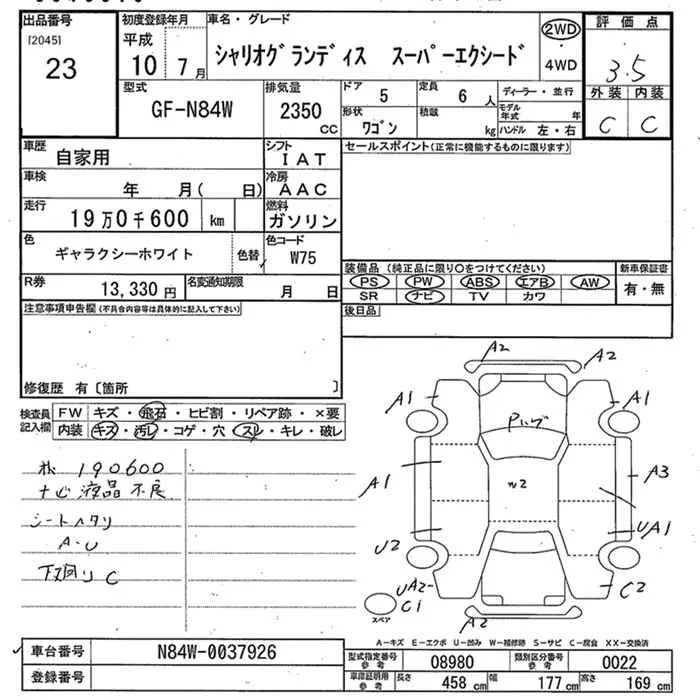 出品番号 初度登録年月 車名・グレード 評価点
[2045] 平成 2WD
23 10 7月 シャリオグランディス スーパーエクシード ・4WD 3.5
型式 排気量 ドア 5 定員 6 人 ディーラー・並行 外装 内装
GF-N84W 2350 cc 形状 ワゴン 積載 kg モデル年式 年 C C
ハンドル 左・右
車歴 自家用 シフト IAT セールスポイント(正常に機能するものに限ります)
車検 年 月( 日) 冷房 AAC
走行 19万0千600 km 燃料 ガソリン
色 ギャラクシーホワイト 色替 色コード W75
装備品 (純正品に限り○をつけてください) 新車保証書
R券 13,330円 名変通知期限 月 日 PS PW ABS エアB AW 有・無
SR ナビ TV カワ
注意事項申告欄(不具合内容等は具体的に記入して下さい) 後日品
修復歴 有〔箇所 〕
検査員記入欄 FW キズ・飛石・ヒビ割・リペア跡・×要
内装 キズ・汚レ・コゲ・穴・スレ・キレ・破レ
190600
ナビ液晶不良
シートヘタリ
A-U
下廻りC
A2 A2
A1 A1
A1 A3
U2 UA1
UA2-
C1 C2
A2
スペア
A-キズ E-エクボ U-凹み W-補修跡 S-サビ C-腐食 XX-交換済
車台番号 N84W-0037926 型式指定番号 参考 08980 類別区分番号 参考 0022
登録番号 車庫証明用 参考 長さ 458 cm 幅 177 cm 高さ 169 cm